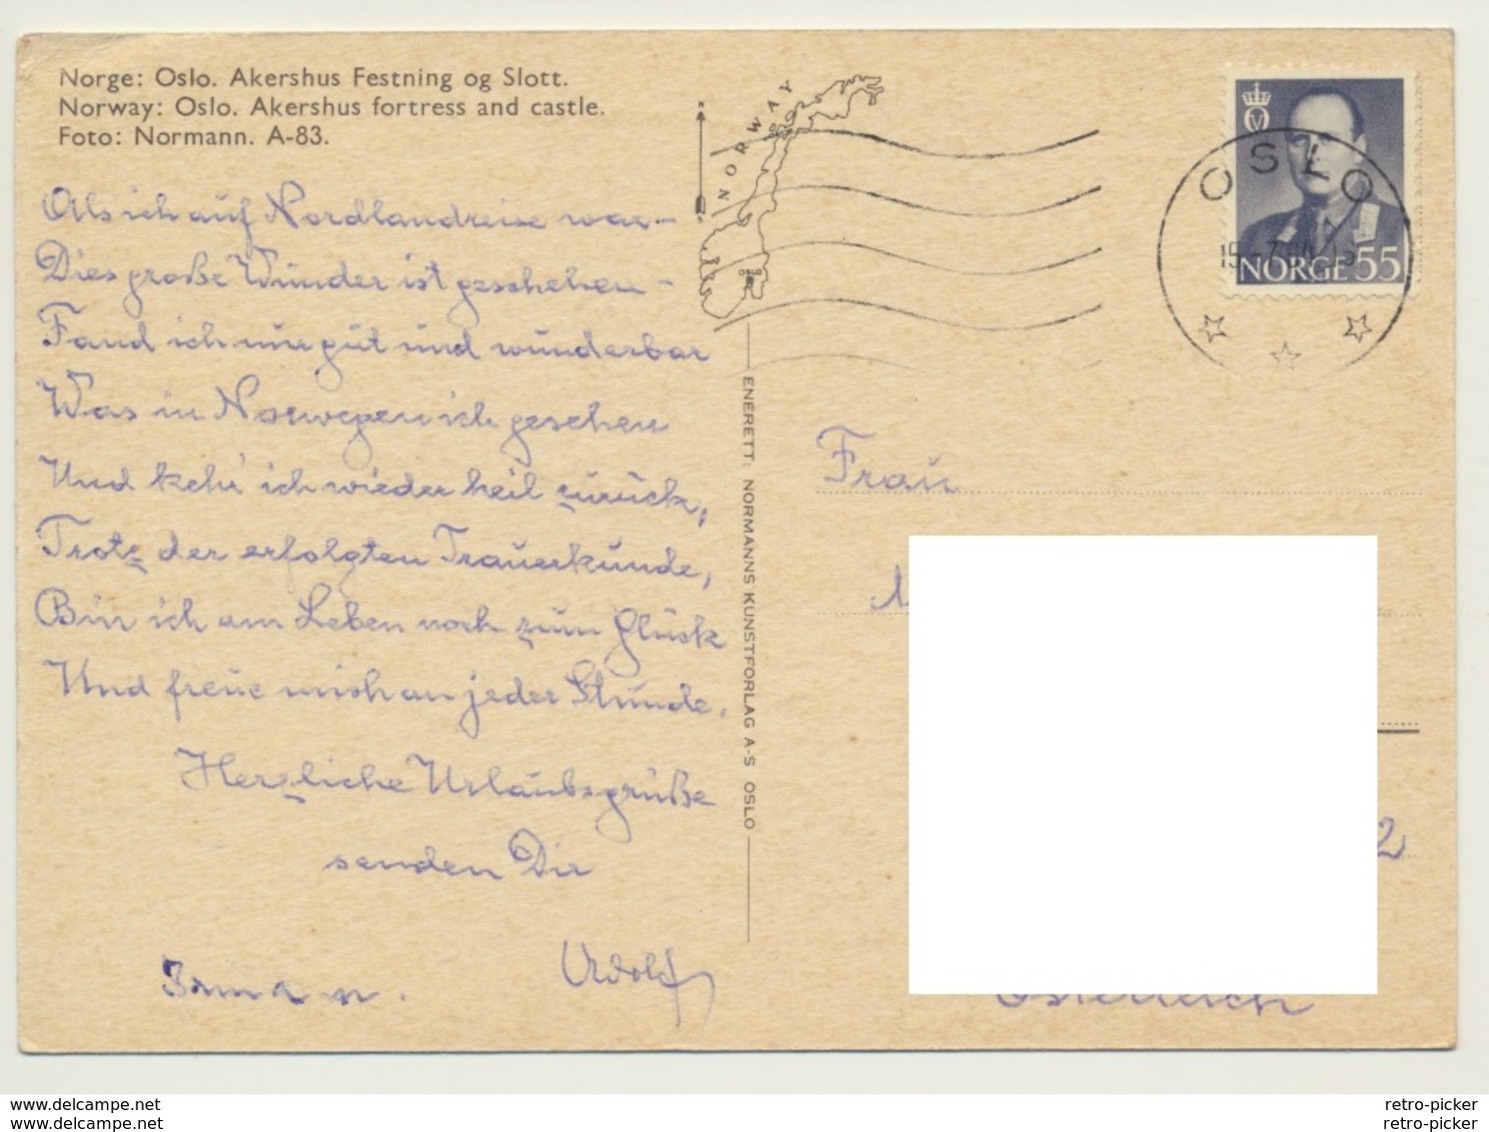 Norge: Oslo. Akershus Festning og Slott.
Norway: Oslo. Akershus fortress and castle.
Foto: Normann. A-83.
Als ich auf Nordlandreise war –
Dies große Wunder ist geschehen –
Fand ich nur gut und wunderbar
Was in Norwegen ich gesehen
Und kehr' ich wieder heil zurück,
Trotz der erfolgten Trauerkunde,
Bin ich am Leben noch zum Glück
Und freue mich an jeder Stunde.
Herzliche Urlaubsgrüße
senden Dir
Adolf
NORWAY
N
S
OSLO
ENERETT: NORMANNS KUNSTFORLAG A-S OSLO
OSLO
NORGE 55
Frau
2
Österreich
www.delcampe.net
www.delcampe.net
retro-picker
retro-picker